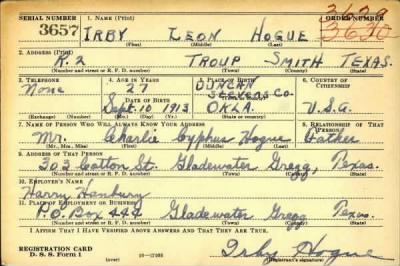 SERIAL NUMBER 1. NAME (Print) ORDER NUMBER
3629
3657 IRBY LEON HOGUE 3630
(First) (Middle) (Last)
2. ADDRESS (Print)
R.2 TROUP SMITH TEXAS.
(Number and street or R. F. D. number) (Town) (County) (State)
3. TELEPHONE 4. AGE IN YEARS 5. PLACE OF BIRTH 6. COUNTRY OF CITIZENSHIP
None 27 DUNCAN
STEPHENS CO.
DATE OF BIRTH (Town or county)
Sept. 10 1913 OKLA. U.S.A.
(Exchange) (Number) (Mo.) (Day) (Yr.) (State or country)
7. NAME OF PERSON WHO WILL ALWAYS KNOW YOUR ADDRESS 8. RELATIONSHIP OF THAT PERSON
Mr. Charlie Cyphus Hogue Father
(Mr., Mrs., Miss) (First) (Middle) (Last)
9. ADDRESS OF THAT PERSON
303 Cotton St. Gladewater Gregg, Texas.
(Number and street or R. F. D. number) (Town) (County) (State)
10. EMPLOYER'S NAME
Harry Hanbury
11. PLACE OF EMPLOYMENT OR BUSINESS
P.O. Box 444 Gladewater Gregg Texas.
(Number and street or R. F. D. number) (Town) (County) (State)
I AFFIRM THAT I HAVE VERIFIED ABOVE ANSWERS AND THAT THEY ARE TRUE.
REGISTRATION CARD
D. S. S. Form 1 (over) Irby Hogue
(Registrant's signature)